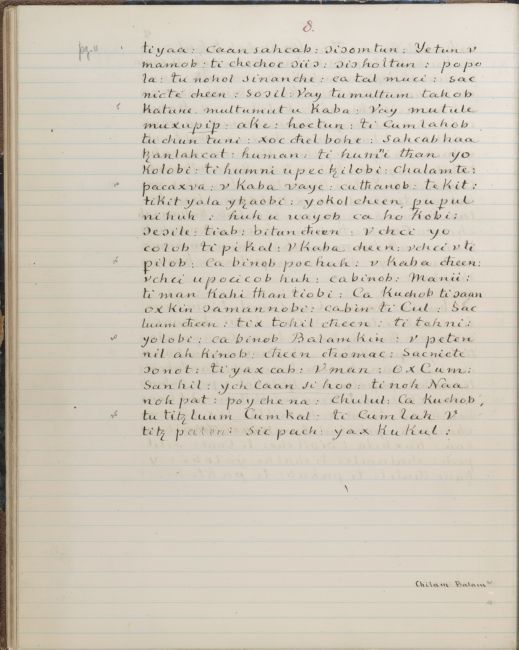 8.
pg. 11
tiyaa: Caan sahcab: sisomtun: Yetun v
mamob: ti chechoc siis: sisholtun: popo
la: tu nohol sinanche: ca tal muci: sac
nicte cheen: Sosil: Vay tumultum takob
Katune multumut u Kaba: Vay mutule
muxupip: ake: hoctun: ti Cumlahob
tuchun tuni: xoc chel bohe: Sahcab haa
ꜩanlahcat: human: ti hunÿi than yo
Kolobi: ti humni upecꜩilobi: Chalamte:
pacaxva: v Kaba vaye: cuthanob: te kit:
tikit yala yꜩaobi: yokol cheen pupul
ni huh: huh u uayob ca ho Kobi:
Sesile: tiab: bitun cheen: v chci yo
colob ti pikal: V Kaba cheen: vchci v ti
pilob: Ca binob pochuh: v Kaba cheen:
vchci u pocicob huh: ca binob: Manii:
ti man Kahi than tiobi: Ca Kuchob ti saan
ox kin samannobi: cabin ti Cul: Sac
luum cheen: tix tohil cheen: ti tohni:
yolobi: ca binob Balam Kin: v peten
nil ah Kinob: cheen chomac: Sacnicte
sonot: ti yax cab: V man: Ox Cum:
San hil: ych Caan si hoo: ti noh Naa
noh pat: poyche na: Chulul: Ca Kuchob,
tu titꜩluum Cum Kal: ti Cum lah V
titꜩ patoni: Sic pach: yax Ku Kul:
Chilam Balam